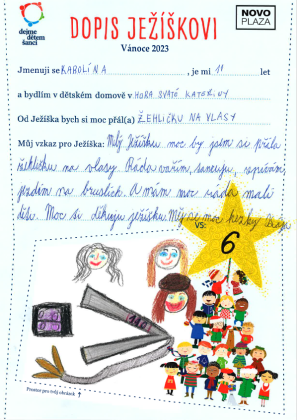 dejme dětem šanci
DOPIS JEŽÍŠKOVI
NOVO PLAZA
Vánoce 2023
Jmenuji se KAROLÍNA, je mi 11 let
a bydlím v dětském domově v HORA SVATÉ KATEŘINY
Od Ježíška bych si moc přál(a) ŽEHLIČKU NA VLASY
Můj vzkaz pro Ježíška: Milý Ježíšku moc by jsem si přála
žehličku na vlasy. Ráda vařím, tancuju, zpívám,
jezdím na bruslích. A mám moc ráda malí
děti. Moc si děkuju ježíšku Měj se moc hezky
VS:
6
Prostor pro tvůj obrázek ↑